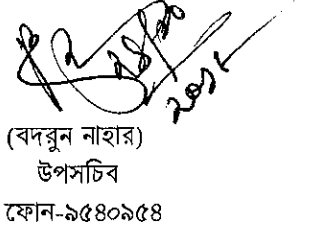 (বদরুন নাহার)
উপসচিব
ফোন-৯৫৪০৯৫৪